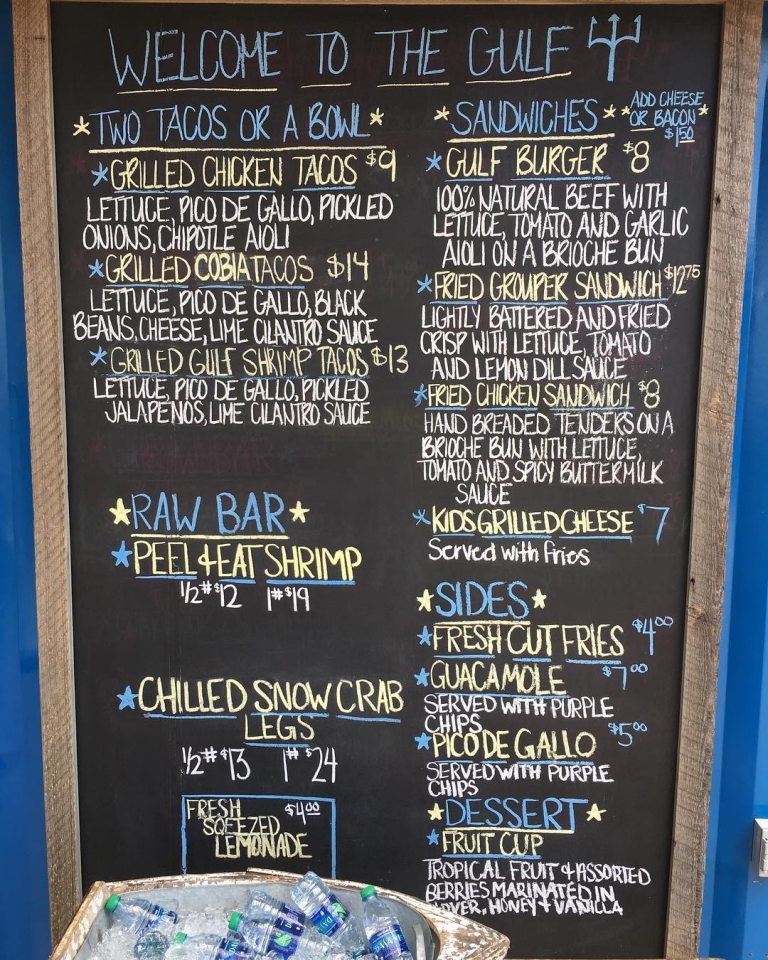 WELCOME TO THE GULF
*TWO TACOS OR A BOWL*
*GRILLED CHICKEN TACOS $9
LETTUCE, PICO DE GALLO, PICKLED
ONIONS, CHIPOTLE AIOLI
*GRILLED COBIA TACOS $14
LETTUCE, PICO DE GALLO, BLACK
BEANS, CHEESE, LIME CILANTRO SAUCE
*GRILLED GULF SHRIMP TACOS $13
LETTUCE, PICO DE GALLO, PICKLED
JALAPENOS, LIME CILANTRO SAUCE
*RAW BAR*
*PEEL & EAT SHRIMP
1/2# $12 1# $19
*CHILLED SNOW CRAB
LEGS
1/2# $13 1# $24
FRESH $4.00
SQEEZED
LEMONADE
*SANDWICHES*
*ADD CHEESE
OR BACON*
$1.50
*GULF BURGER $8
100% NATURAL BEEF WITH
LETTUCE, TOMATO AND GARLIC
AIOLI ON A BRIOCHE BUN
*FRIED GROUPER SANDWICH $12.75
LIGHTLY BATTERED AND FRIED
CRISP WITH LETTUCE, TOMATO
AND LEMON DILL SAUCE
*FRIED CHICKEN SANDWICH $8
HAND BREADED TENDERS ON A
BRIOCHE BUN WITH LETTUCE,
TOMATO AND SPICY BUTTERMILK
SAUCE
*KIDS GRILLED CHEESE $7
Served with fries
*SIDES*
*FRESH CUT FRIES $4.00
*GUACAMOLE $7.00
SERVED WITH PURPLE
CHIPS
*PICO DE GALLO $5.00
SERVED WITH PURPLE
CHIPS
*DESSERT*
*FRUIT CUP
TROPICAL FRUIT & ASSORTED
BERRIES MARINATED IN
HONEY & VANILLA